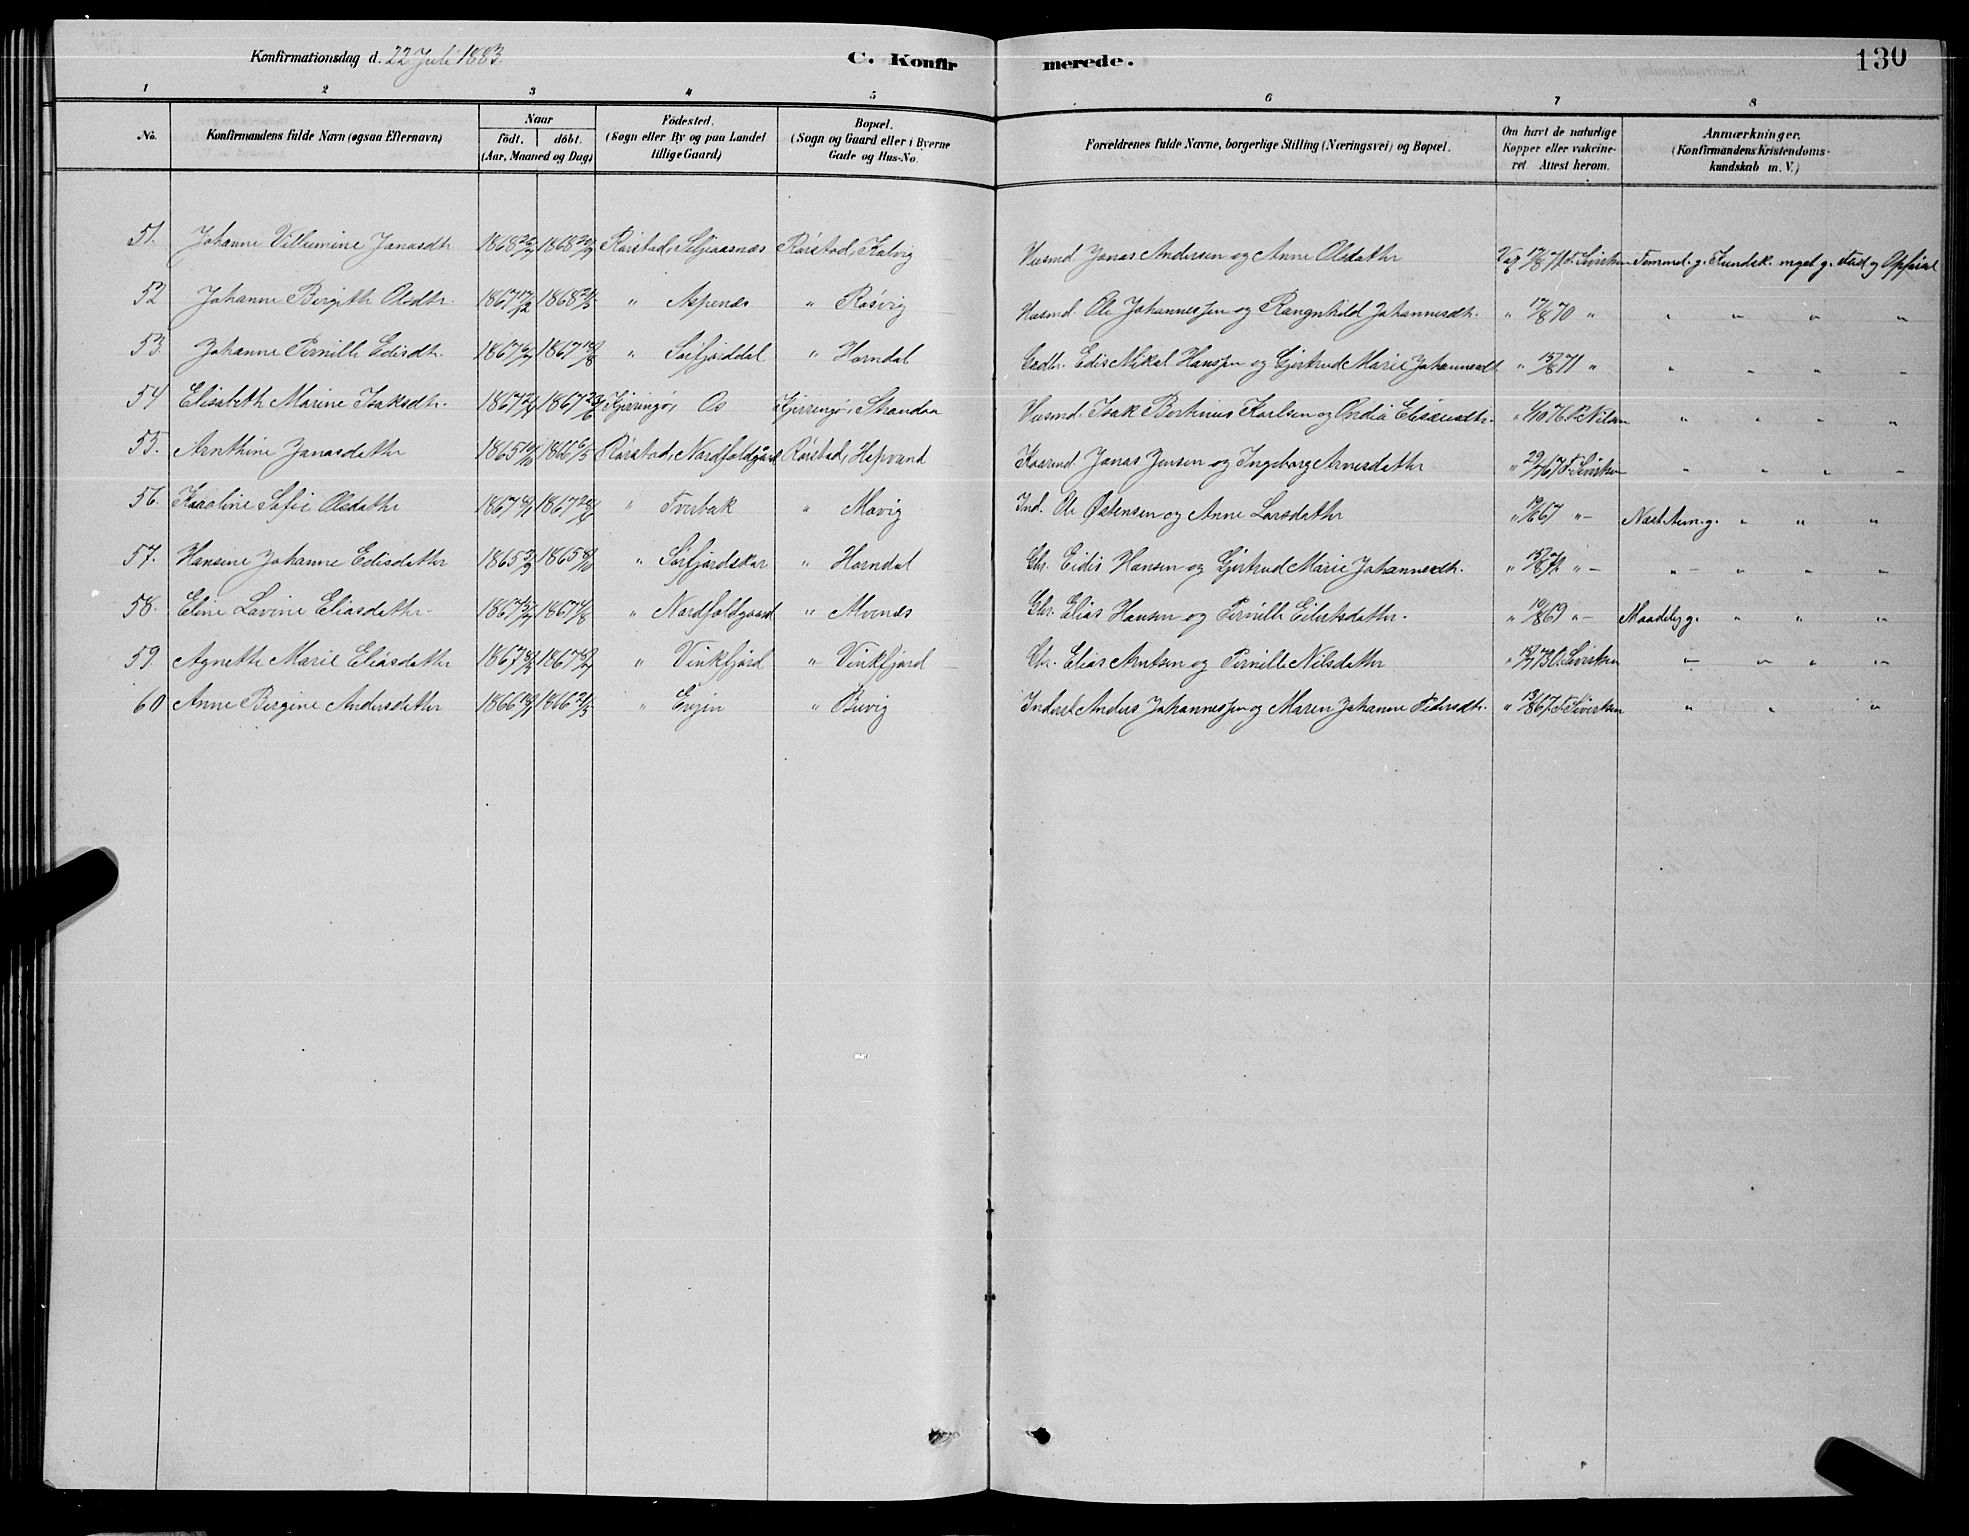 Konfirmationsdag d. 22 Juli 1883. C. Konfirmerede. 130
1 2 3 4 5 6 7 8
No. Konfirmandens fulde Navn (ogsaa Efternavn) Naar födt. döbt. (Aar, Maaned og Dag) Födested. (Sogn eller By og paa Landet tillige Gaard) Bopæl. (Sogn og Gaard eller i Byerne Gade og Hus-No. Forældrenes fulde Navne, borgerlige Stilling (Næringsvei) og Bopæl. Om havt de naturlige Kopper eller vakcineret Attest herom. Anmærkninger. (Konfirmandens Kristendomskundskab m. V.)
51. Johanne Villumine Jonasdtr 1868 1868 Rörstad, Seljeaasnæs Rörstad, Kalvig Husmd. Jonas Andersen og Anne Olsdatter Vac 71 Sivertsen Temmel. g. Kundsk. meget g. Flid og Opførsel
52 Johanne Birgith Olsdtr. 1867 1868 " Aspenæs " Rosvig Husmd. Ole Johannessen og Rangnhild Johannesdtr. " 17/8 70 " " " " "
53. Johanne Pernille Edisdtr. 1867 1867 " Sörfjorddal " Horndal Gadbr. Edis Mikal Hanssen og Gjertrud Marie Johannesdt " 15/8 71 " " " " "
54 Elisabeth Marine Isaksdtr. 1867 1867 Kjerringö, Os Kjerringö, Strandaa Husmd. Isak Bertinius Karlsen og Ovidia Eliseusdtr. " 4/10 76 P. Nilsen " " " "
55. Arnthine Jonasdatter 1865 1866 6/5 Rörstad, Nordfoldgård Rörstad, Hopvand Kaarmd. Jonas Jensen og Ingeborg Arnesdatter " 67 Sivertsen " " " "
56. Karoline Sofie Olsdatter 1867 1867 " Tverbak " Movig Ind. Ole Östensen og Anne Larsdatter " 19/8 67 " Næst. tem. g. " " "
57. Hansine Johanne Edisdatter 1865 1865 " Sörfjordskar " Horndal Gbr. Eidis Hansen og Gjertrud Marie Johannesdtr. " 15/8 72 " " " " "
58. Eline Lavine Eliasdatter 1867 1867 " Nordfoldgaard " Movnæs Gbr. Elias Hansen og Pernille Eilertsdatter. " 19/8 69 " Maadelig g. " " "
59. Agneth Marie Eliasdatter 1867 1867 " Vinkfjord " Vinkfjord Gbr. Elias Arntsen og Pernille Nilsdatter " 73 O. Sivertsen " " " "
60 Anne Bergine Andersdatter 1866 1866 " Evjen " Buvig Inderst Anders Johannessen og Maren Johanne Pedersdtr. " 13/8 67. Sivertsen " " "